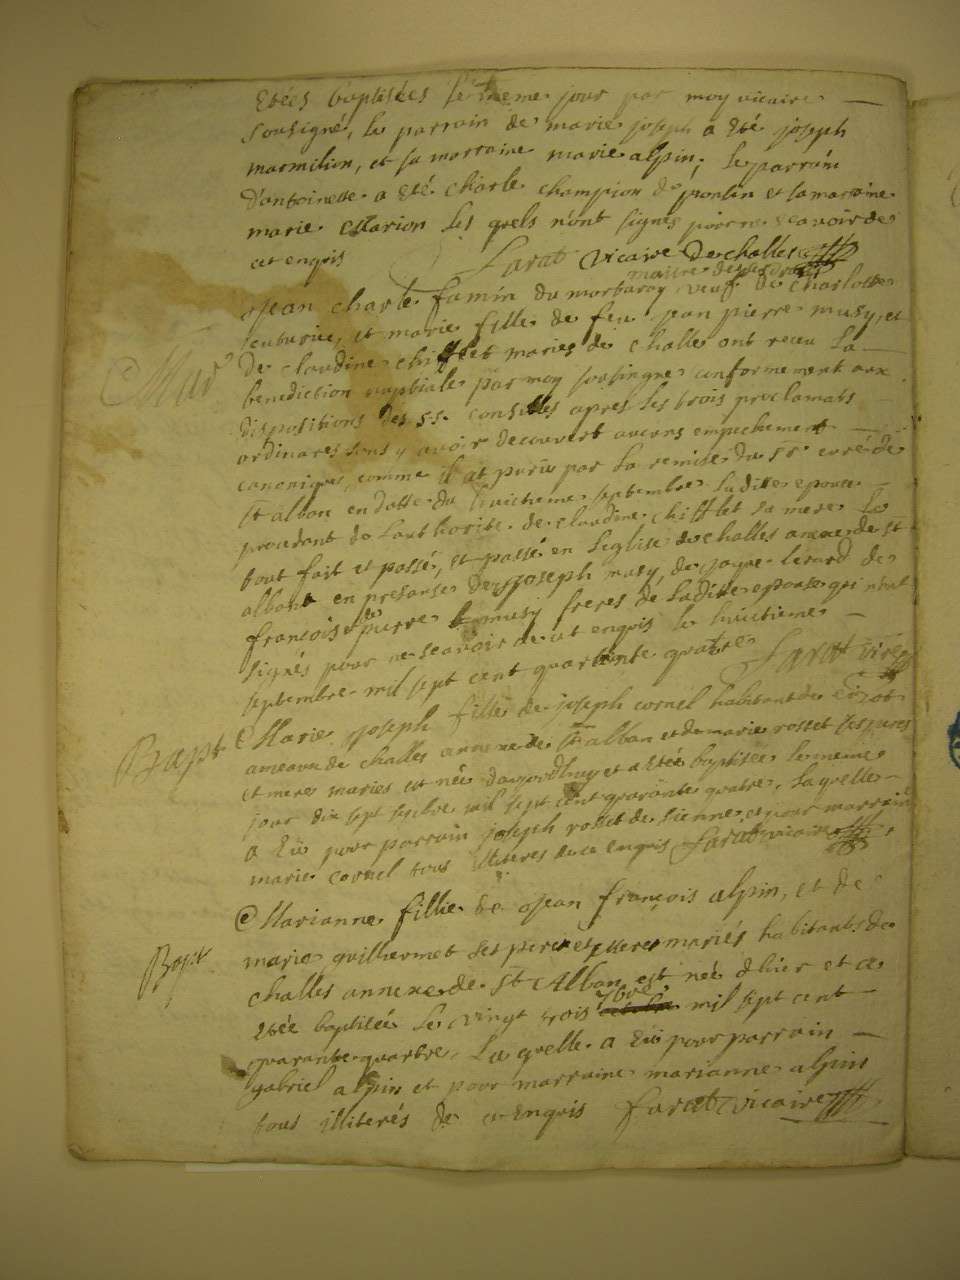 Etées baptisées le meme jour par moy vicaire
sousigné, le parrain de marie joseph a Eté joseph
marmilion, et sa marraine marie alpin, le parrain
d'antoinette a Eté charle champion de poulin et la maraine
marie Marion les quels n'ont signés pour ne scavoir de
ce enquis Farat vicaire de challes
maitre
jean charle famin du morbaroy veuf de charlotte
et marie fille de feu jean pierre musy, et
De claudine chifflet mariés de challe ont receu la
benediction nuptiale par moy sousingné conformement aux
dispositions des SS. conciles apres les trois proclamats
ordinaires sans y avoir decouvert aucuns empechement
canoniques, comme il at paru par la remise du Sr curé de
St albon en datte du huictieme septembre laditte epouse
procedant de l'authorité de claudine chifflet sa mere le
tout fait et passé, et passé en l'eglise de challes annexe de St
albon en presance de joseph musy, de
françois de pierre musy freres de laditte epouse qui n'ont
signés pour ne scavoir de ce enquis le huictieme
septembre mil sept cent quarante quatre Farat vire
Mar
Bapt
Marie joseph fille de joseph cornel habitant de
ameaux de challes annexe de St alban et de marie rosset ses peres
et meres mariés est née daujourdhuy et a Etée baptisée le meme
jour dix sept septbre mil sept cent quarante quatre, laquelle
a Eü pour parrain joseph rosset de sienne, et pour marraine
marie cornel tous illiteres de ce enquis Farat vicaire
Bapt
Marianne fillie de jean françois alpin, et de
marie guilhermet ses pere et mere mariés habitants de
challes annexe de St Alban est née d'hier et a
7bre
Etée baptisée le vingt trois mil sept cent
quarante quatre. Laquelle a Eü pour parrain
gabriel alpin et pour marraine marianne alpin
tous illiterés de ce Enquis farat vicaire